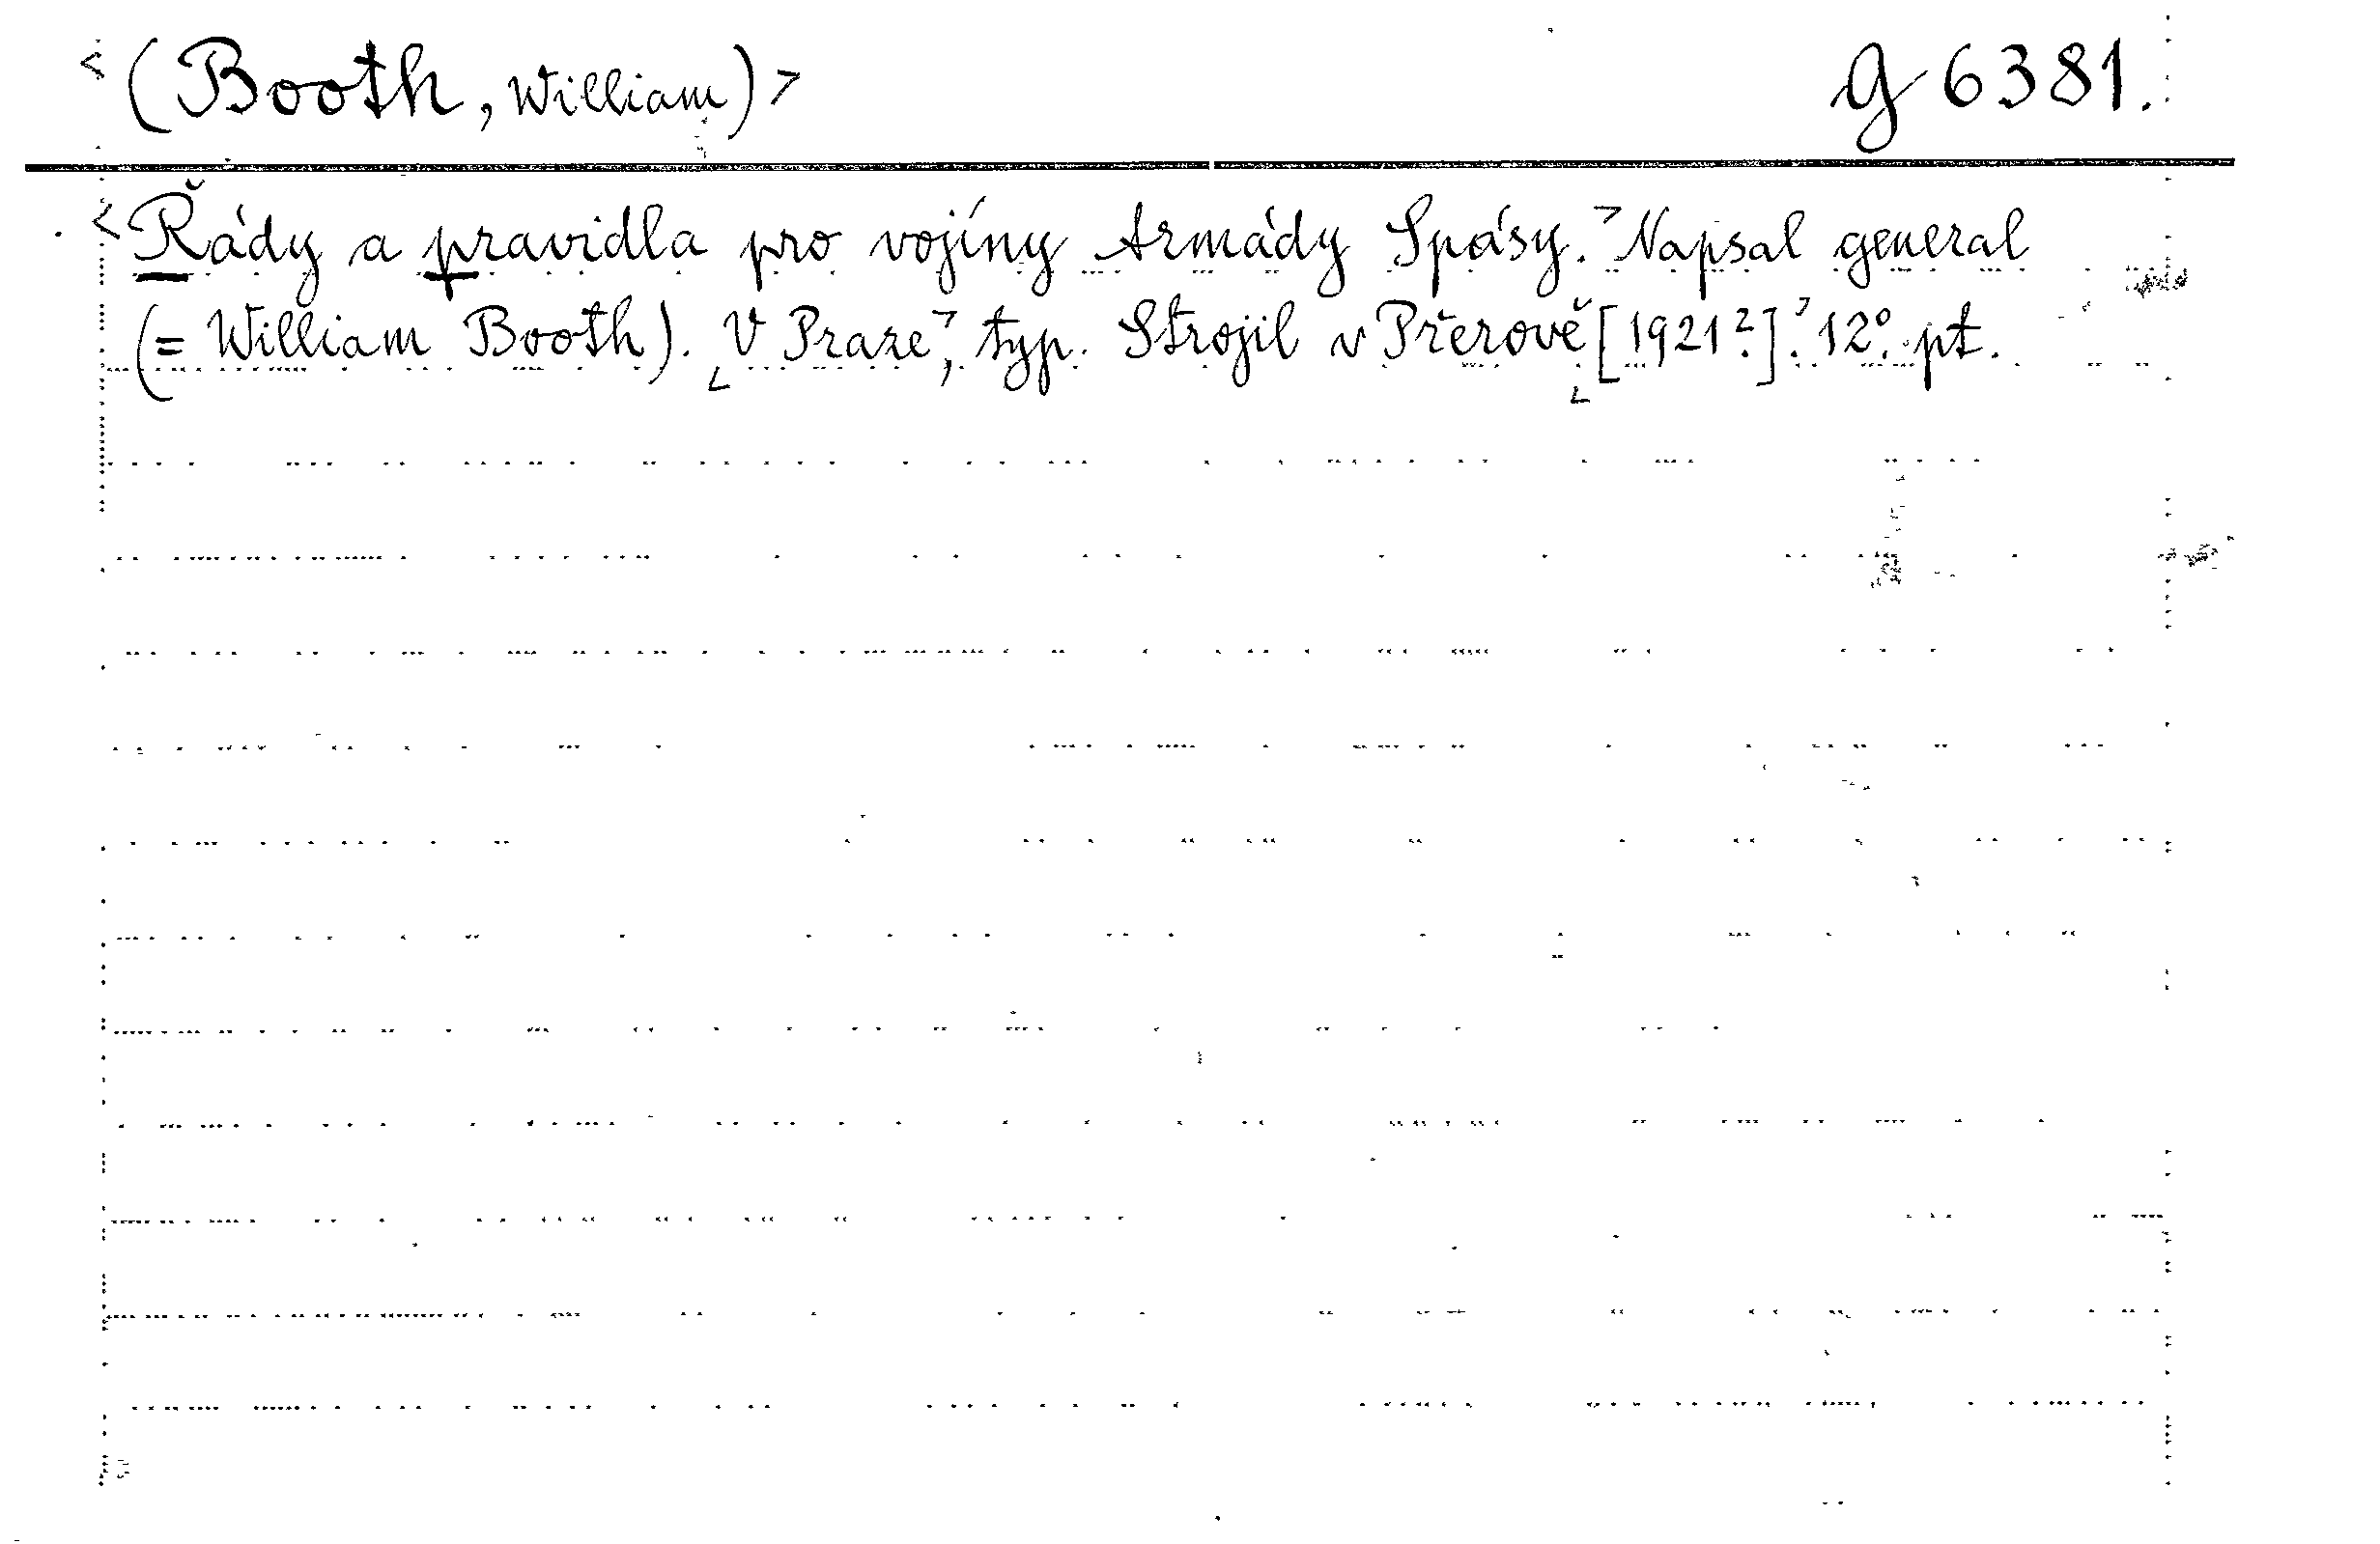 <(Booth, William)> g 6381.
<Řády a pravidla pro vojíny Armády Spásy.> Napsal general
(= William Booth). <V Praze>, typ. Strojil v Přerově <[1921?]>. 12°. pt.